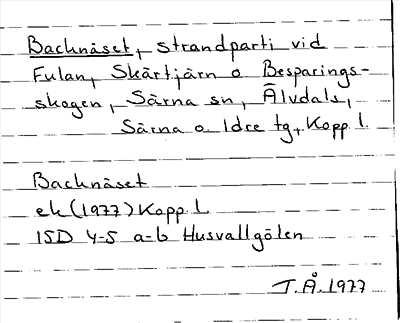 Backnäset, strandparti vid
Fulan, Skärtjärn o Besparings-
skogen, Särna sn, Älvdals,
Särna o Idre tg, Kopp. l.
Backnäset
ek (1977) Kopp l.
15D 4-5 a-b Husvallgölen
T.Å. 1977